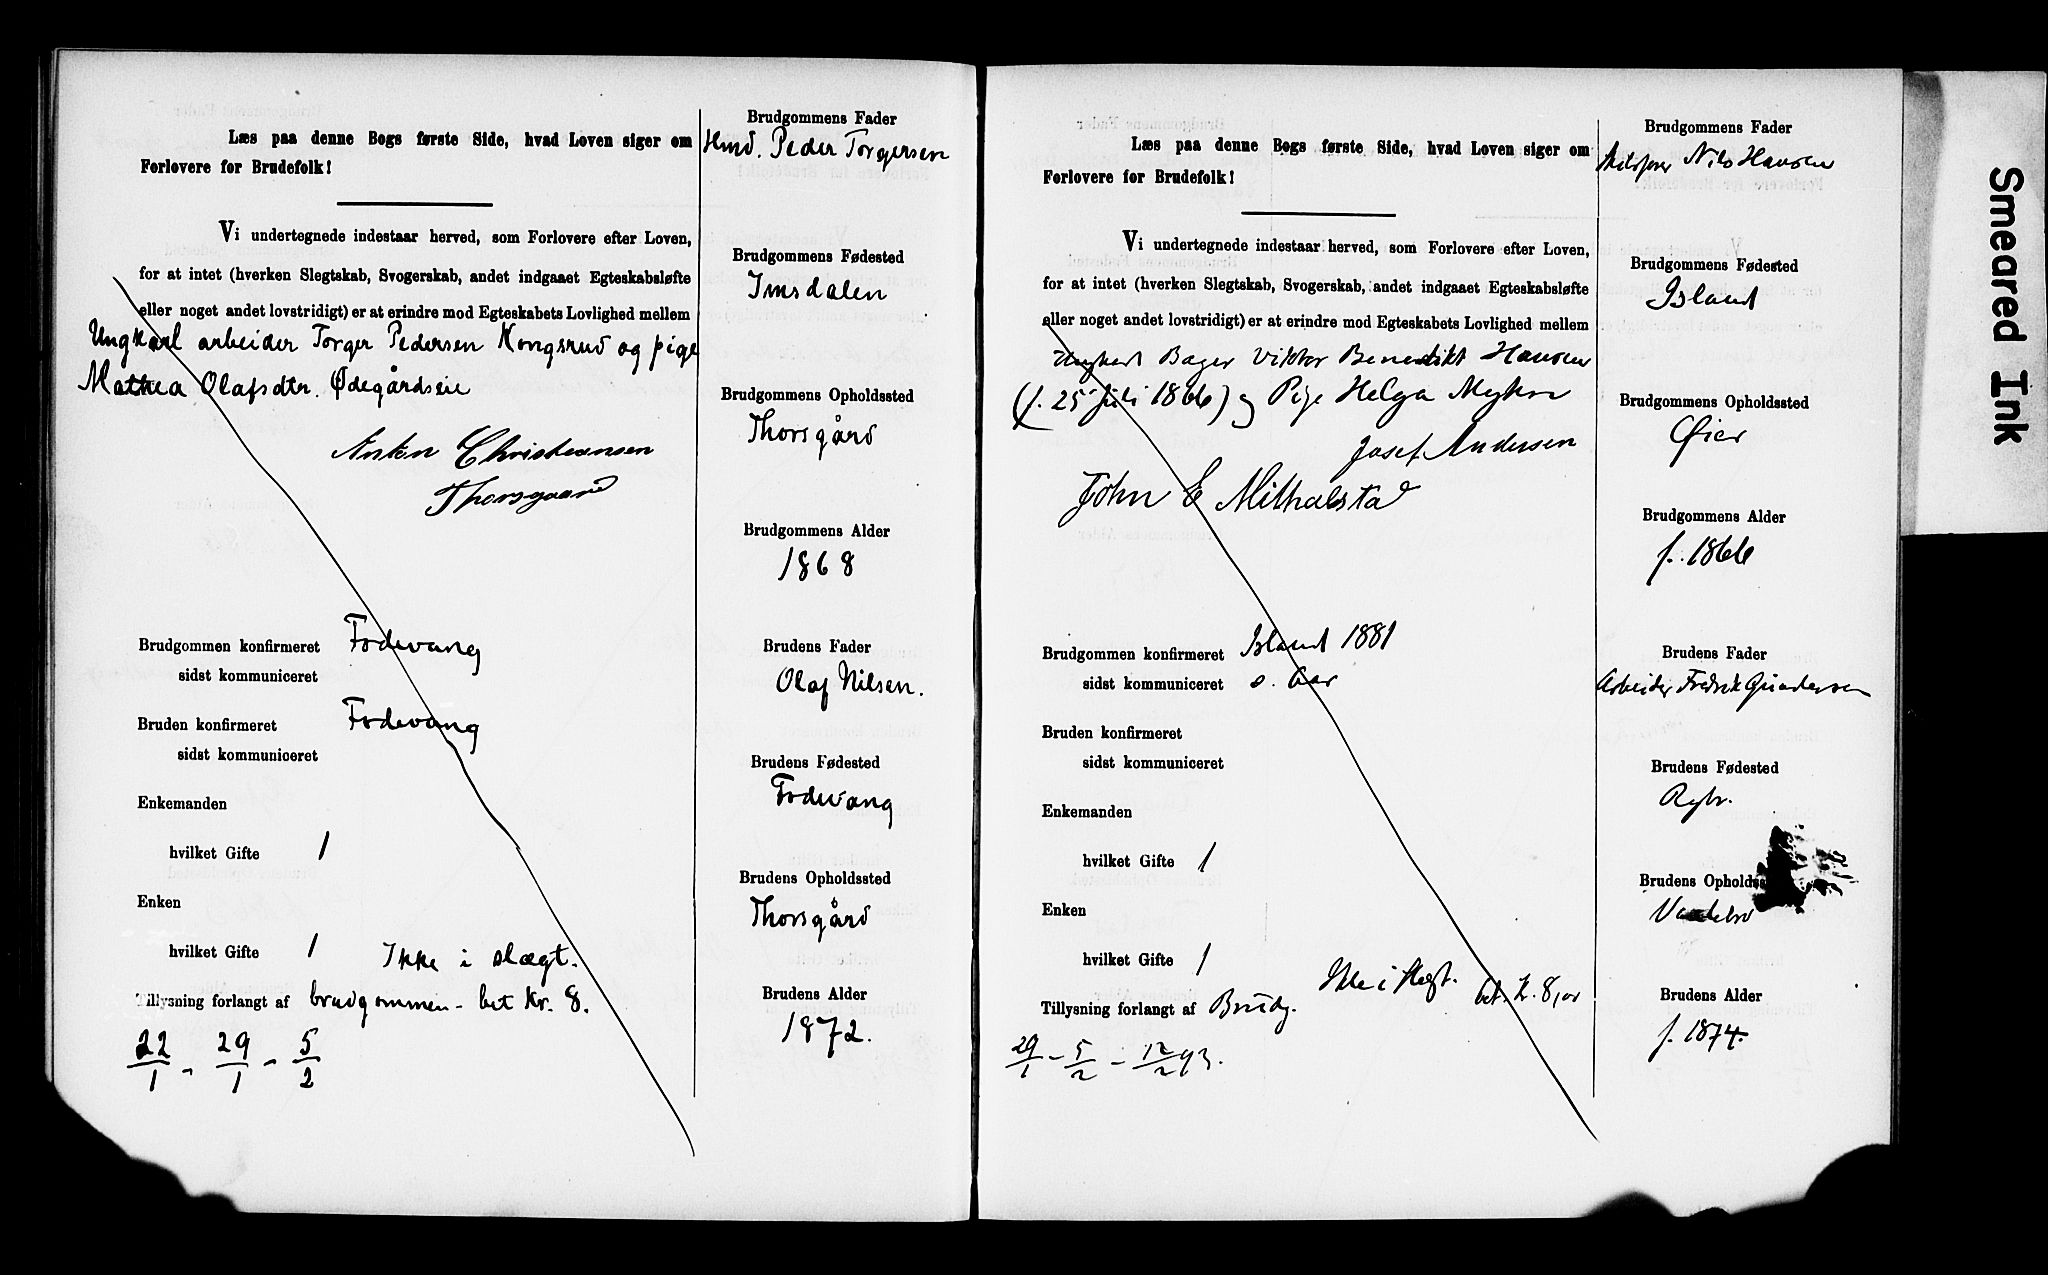 Læs paa denne Bogs første Side, hvad Loven siger om
Forlovere for Brudefolk!
Vi undertegnede indestaar herved, som Forlovere efter Loven,
for at intet (hverken Slegtskab, Svogerskab, andet indgaaet Egteskabsløfte
eller noget andet lovstridigt) er at erindre mod Egteskabets Lovlighed mellem
Ungkarl arbeider Torger Pedersen Kongsrud og pige
Mathea Olafsdtr. Ødegårdseie
Anton Christiansen
Thorsgaard
Brudgommen konfirmeret Fodevang
sidst kommuniceret
Bruden konfirmeret Fodevang
sidst kommuniceret
Enkemanden
hvilket Gifte 1
Enken
hvilket Gifte 1 Ikke i slægt.
Tillysning forlangt af brudgommen - bet Kr. 8.
22/1 - 29/1 - 5/2
Brudgommens Fader
Hmd. Peder Torgersen
Brudgommens Fødested
Imsdalen
Brudgommens Opholdssted
Thorsgård
Brudgommens Alder
1868
Brudens Fader
Olaf Nilsen.
Brudens Fødested
Fodevang
Brudens Opholdssted
Thorsgård
Brudens Alder
1872.
Læs paa denne Bogs første Side, hvad Loven siger om
Forlovere for Brudefolk!
Vi undertegnede indestaar herved, som Forlovere efter Loven,
for at intet (hverken Slegtskab, Svogerskab, andet indgaaet Egteskabsløfte
eller noget andet lovstridigt) er at erindre mod Egteskabets Lovlighed mellem
Ungkarl Bager Viktor Benedikt Hansen
(f. 25 juli 1866) og Pige Helga Myhre
Josef Andersen
John E
Brudgommen konfirmeret Island 1881
sidst kommuniceret s. Aar
Bruden konfirmeret
sidst kommuniceret
Enkemanden
hvilket Gifte 1
Enken
hvilket Gifte 1 Ikke i slegt.
Tillysning forlangt af Brudg. bet. kr. 8,00
29/1 - 5/2 - 12/2 93.
Brudgommens Fader
Nils Hansen
Brudgommens Fødested
Island
Brudgommens Opholdssted
Øier
Brudgommens Alder
f. 1866
Brudens Fader
Arbeider Fredrik Gundersen
Brudens Fødested
Brudens Opholdss
Brudens Alder
f. 1874.
Smeared Ink